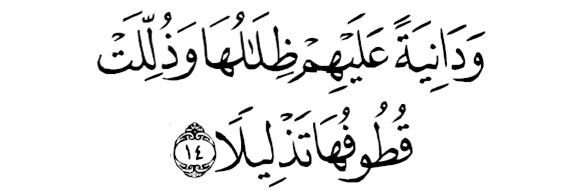 وَدَانِيَةً عَلَيْهِمْ ظِلَـٰلُهَا وَذُلِّلَتْ
قُطُوفُهَا تَذْلِيلًا ١٤